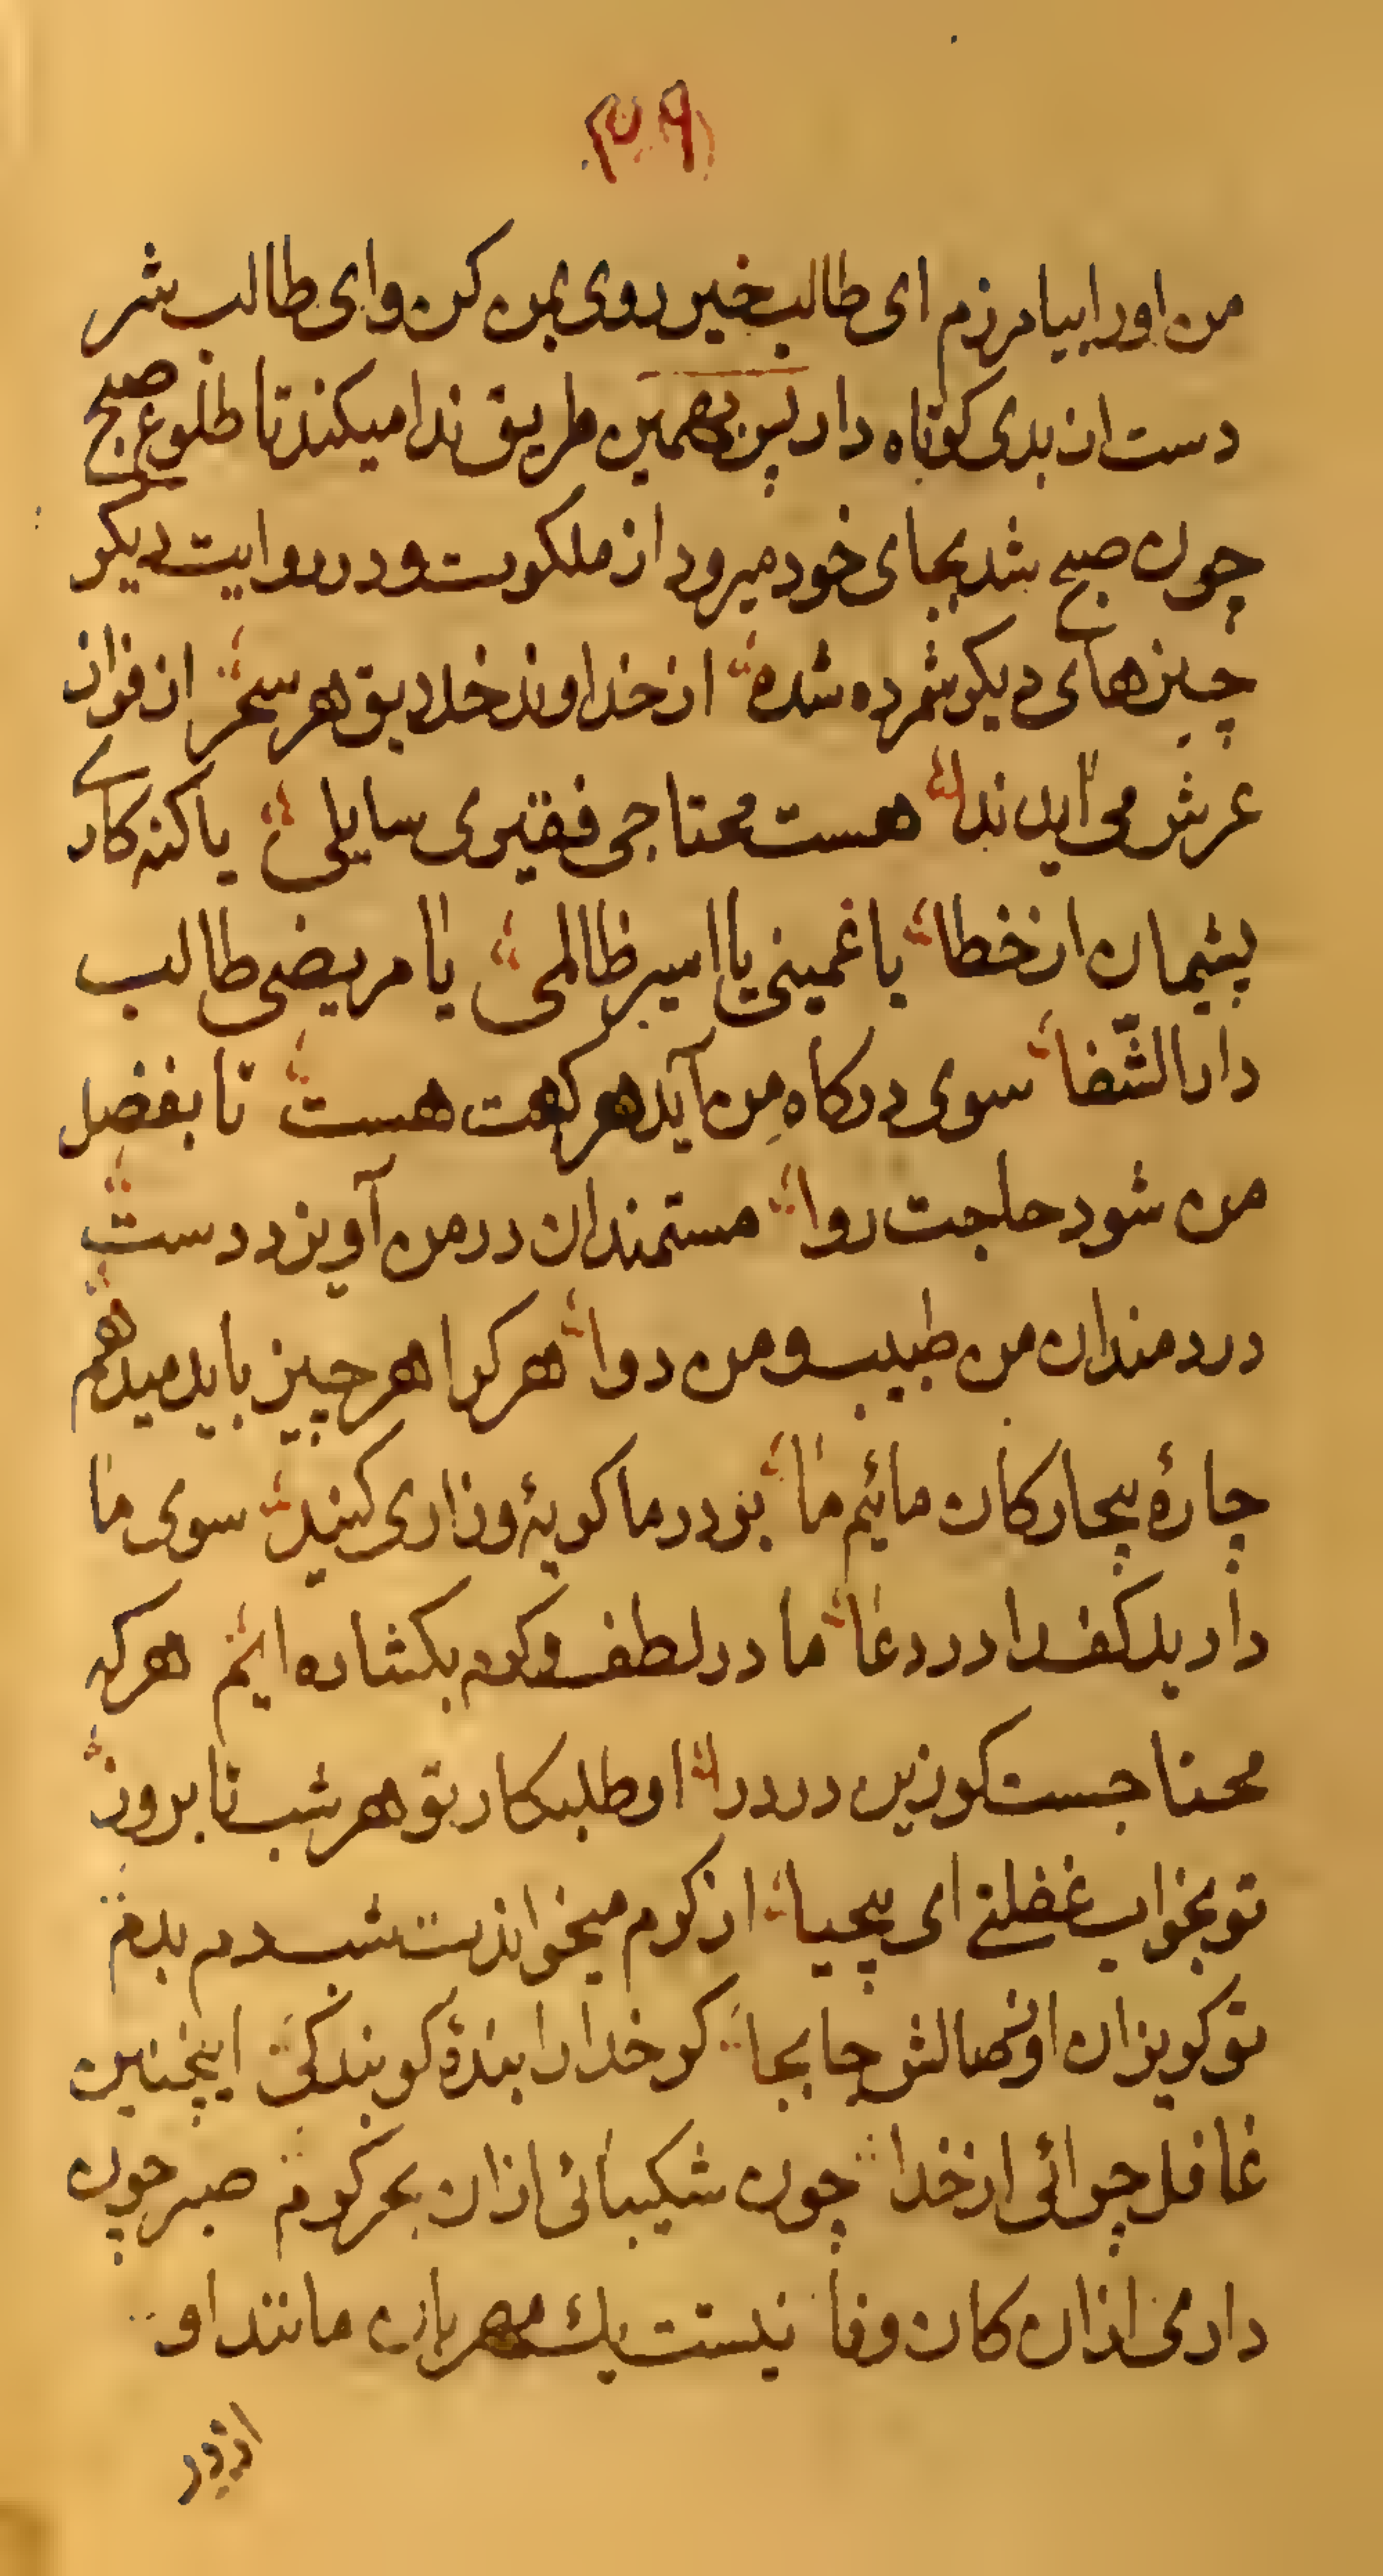 من اورا بیامرزم ای طالب خیر روی بمن کن وای طالب شر
دست از بدی کوتاه دار پس بهمین طریق ندا میکند تا طلوع صبح
چون صبح شد بجای خود میرود از ملکوت و در روایت دیکر
چیزهای دیکر شمرده شده از خداوند خلایق هر سحر از فراز
عرش می آید ندا هست محتاجی فقیری سایلی یا کنه کاری
پشیمان از خطا یا غمینی یا اسیر ظالمی یا مریضی طالب
دار الشّفا سوی درکاه من آید هر که هست تا بفضل
من شود حاجت روا مستمندان در من آویزد دست
دردمندان من طبیب و من دوا هر کرا هر چیز باید میدهم
چارهٔ بیچارکان مائیم ما بر در ما کریهٔ وزاری کنید سوی ما
دارید کف را در دعا ما در لطف و کرم بکشاده ایم هر که
محتاجست کو زین در درا او طلبکار تو هر شب تا بروز
تو بخواب غفلتی ای بیحیا از کرم میخواندت شب دم بدم
تو کریزان از وصالش جا بجا کر خدا را بندهٔ کو بندکی اینچنین
غافل چرائی از خدا چون شکیبائی ازان بحر کرم صبر چون
داری ازان کان وفا نیست یك مهربان مانند او
از در